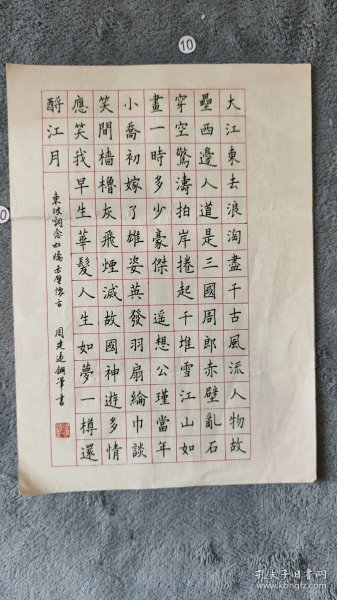 大江東去浪淘盡千古風流人物故
壘西邊人道是三國周郎赤壁亂石
穿空驚濤拍岸捲起千堆雪江山如
畫一時多少豪傑 遥想公瑾當年
小喬初嫁了雄姿英發羽扇綸巾談
笑間檣櫓灰飛煙滅故國神遊多情
應笑我早生華髮人生如夢一樽還
酹江月
東坡詞念奴嬌赤壁懷古 周建遠鋼筆書
10
孔夫子旧书网
www.kongfz.com